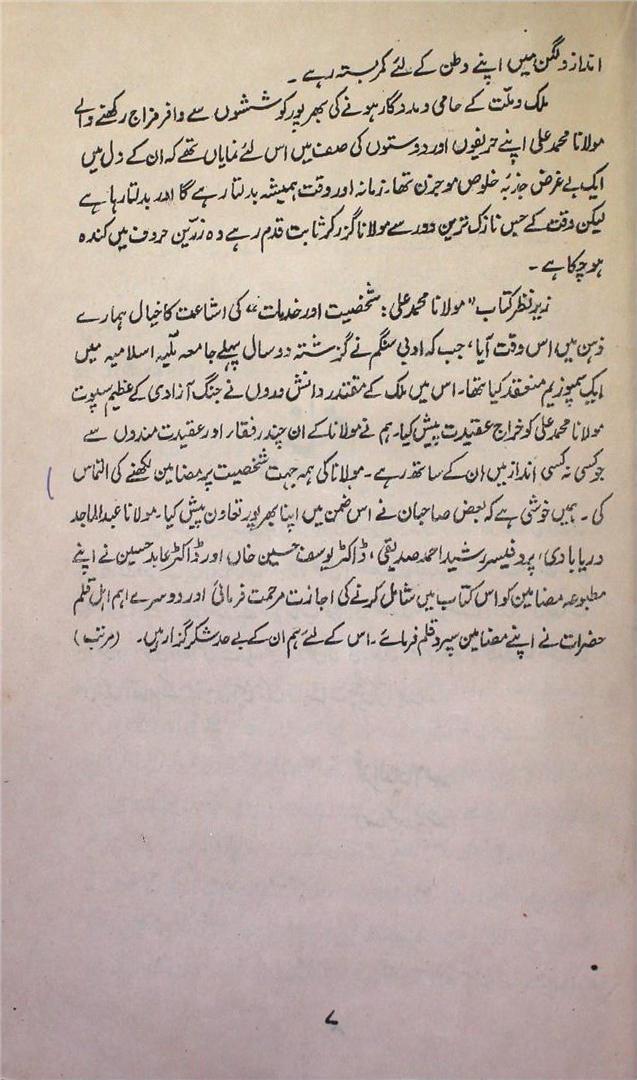 انداز و لگن میں اپنے وطن کے لئے کمربستہ رہے ۔
ملک و ملت کے حامی و مددگار ہونے کی بھرپور کوششوں سے وافر مزاج رکھنے والے
مولانا محمد علی اپنے حریفوں اور دوستوں کی صف میں اس لئے نمایاں تھے کہ ان کے دل میں
ایک بے غرض جذبۂ خلوص موجزن تھا۔ زمانہ اور وقت ہمیشہ بدلتا رہے گا اور بدلتا رہا ہے
لیکن وقت کے جس نازک ترین دور سے مولانا گزر کر ثابت قدم رہے وہ زرّین حروف میں کندہ
ہو چکا ہے ۔
زیرِ نظر کتاب "مولانا محمد علی: شخصیت اور خدمات" کی اشاعت کا خیال ہمارے
ذہن میں اس وقت آیا، جب کہ ادبی سنگم نے گزشتہ دو سال پہلے جامعہ ملّیہ اسلامیہ میں
ایک سمپوزیم منعقد کیا تھا۔ اس میں ملک کے مقتدر دانش وروں نے جنگ آزادی کے عظیم سپوت
مولانا محمد علی کو خراج عقیدت پیش کیا۔ ہم نے مولانا کے ان چند رفقاء اور عقیدت مندوں سے
جو کسی نہ کسی انداز میں ان کے ساتھ رہے ۔ مولانا کی ہمہ جہت شخصیت پر مضامین لکھنے کی التماس
کی ۔ ہمیں خوشی ہے کہ بعض صاحبان نے اس ضمن میں اپنا بھرپور تعاون پیش کیا۔ مولانا عبدالماجد
دریابادی، پروفیسر رشید احمد صدیقی، ڈاکٹر یوسف حسین خاں اور ڈاکٹر عابد حسین نے اپنے
مطبوعہ مضامین کو اس کتاب میں شامل کرنے کی اجازت مرحمت فرمائی اور دوسرے اہم اہل قلم
حضرات نے اپنے مضامین سپرد قلم فرمائے ۔ اس کے لئے ہم ان کے بے حد شکر گزار ہیں۔ (مرتب)
۷